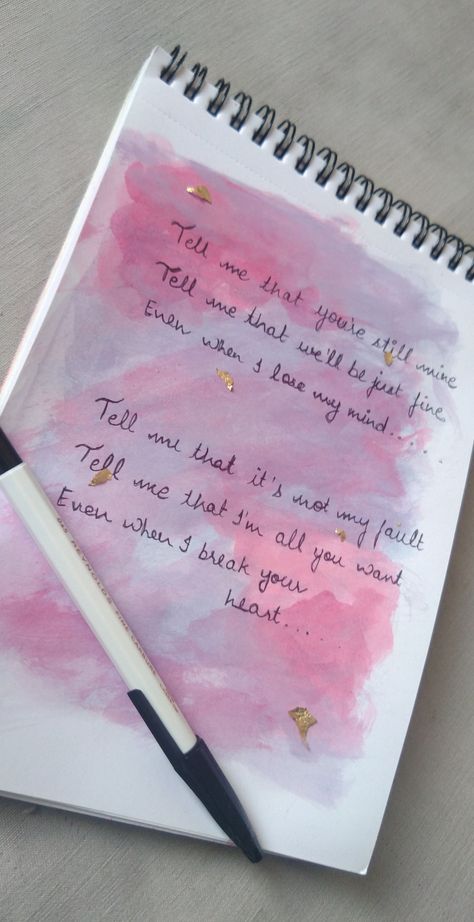 Tell me that you're still mine
Tell me that we'll be just fine
Even when I lose my mind.....
Tell me that it's not my fault
Tell me that I'm all you want
Even when I break your
heart.....